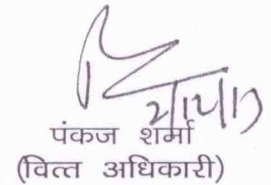 पंकज शर्मा
(वित्त अधिकारी)